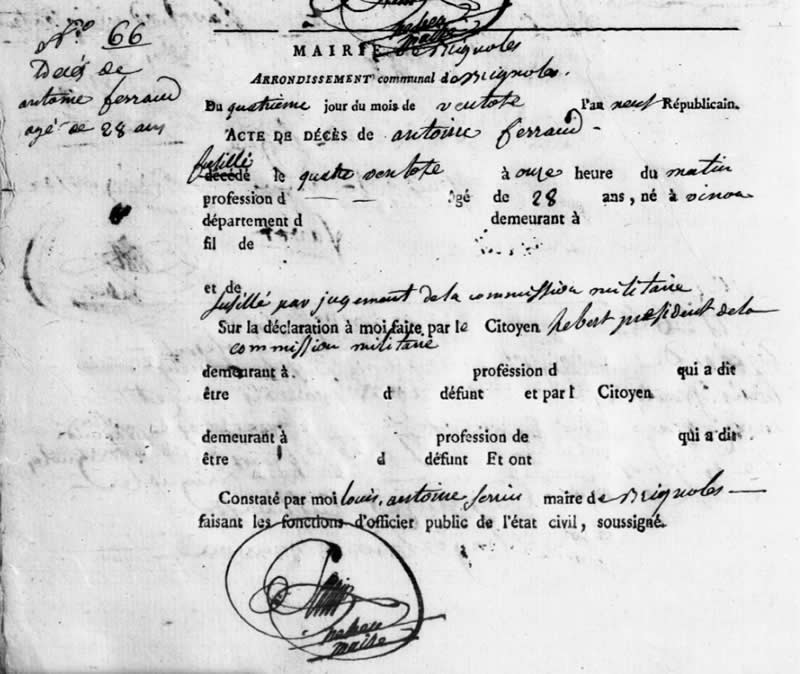 N.° 66
Décés de
antoine ferraud
agé de 28 ans
maire
MAIRIE de Brignoles
ARRONDISSEMENT communal de Brignoles.
Du quatrieme jour du mois de ventose l'an neuf Républicain.
ACTE DE DÉCÈS de antoine ferraud
fusillé
décédé le quatre ventose à onze heure du matin
profession d âgé de 28 ans, né à vinon
département d demeurant à
fil de
et de
fusillé par jugement de la commission militaire
Sur la déclaration à moi faite par le Citoyen hebert président de la
commission militaire
demeurant à profession d qui a dit
être d défunt et par l Citoyen
demeurant à profession de qui a dit
être d défunt Et ont
Constaté par moi louis, antoine maire de Brignoles
faisant les fonctions d'officier public de l'état civil, soussigné.
maire